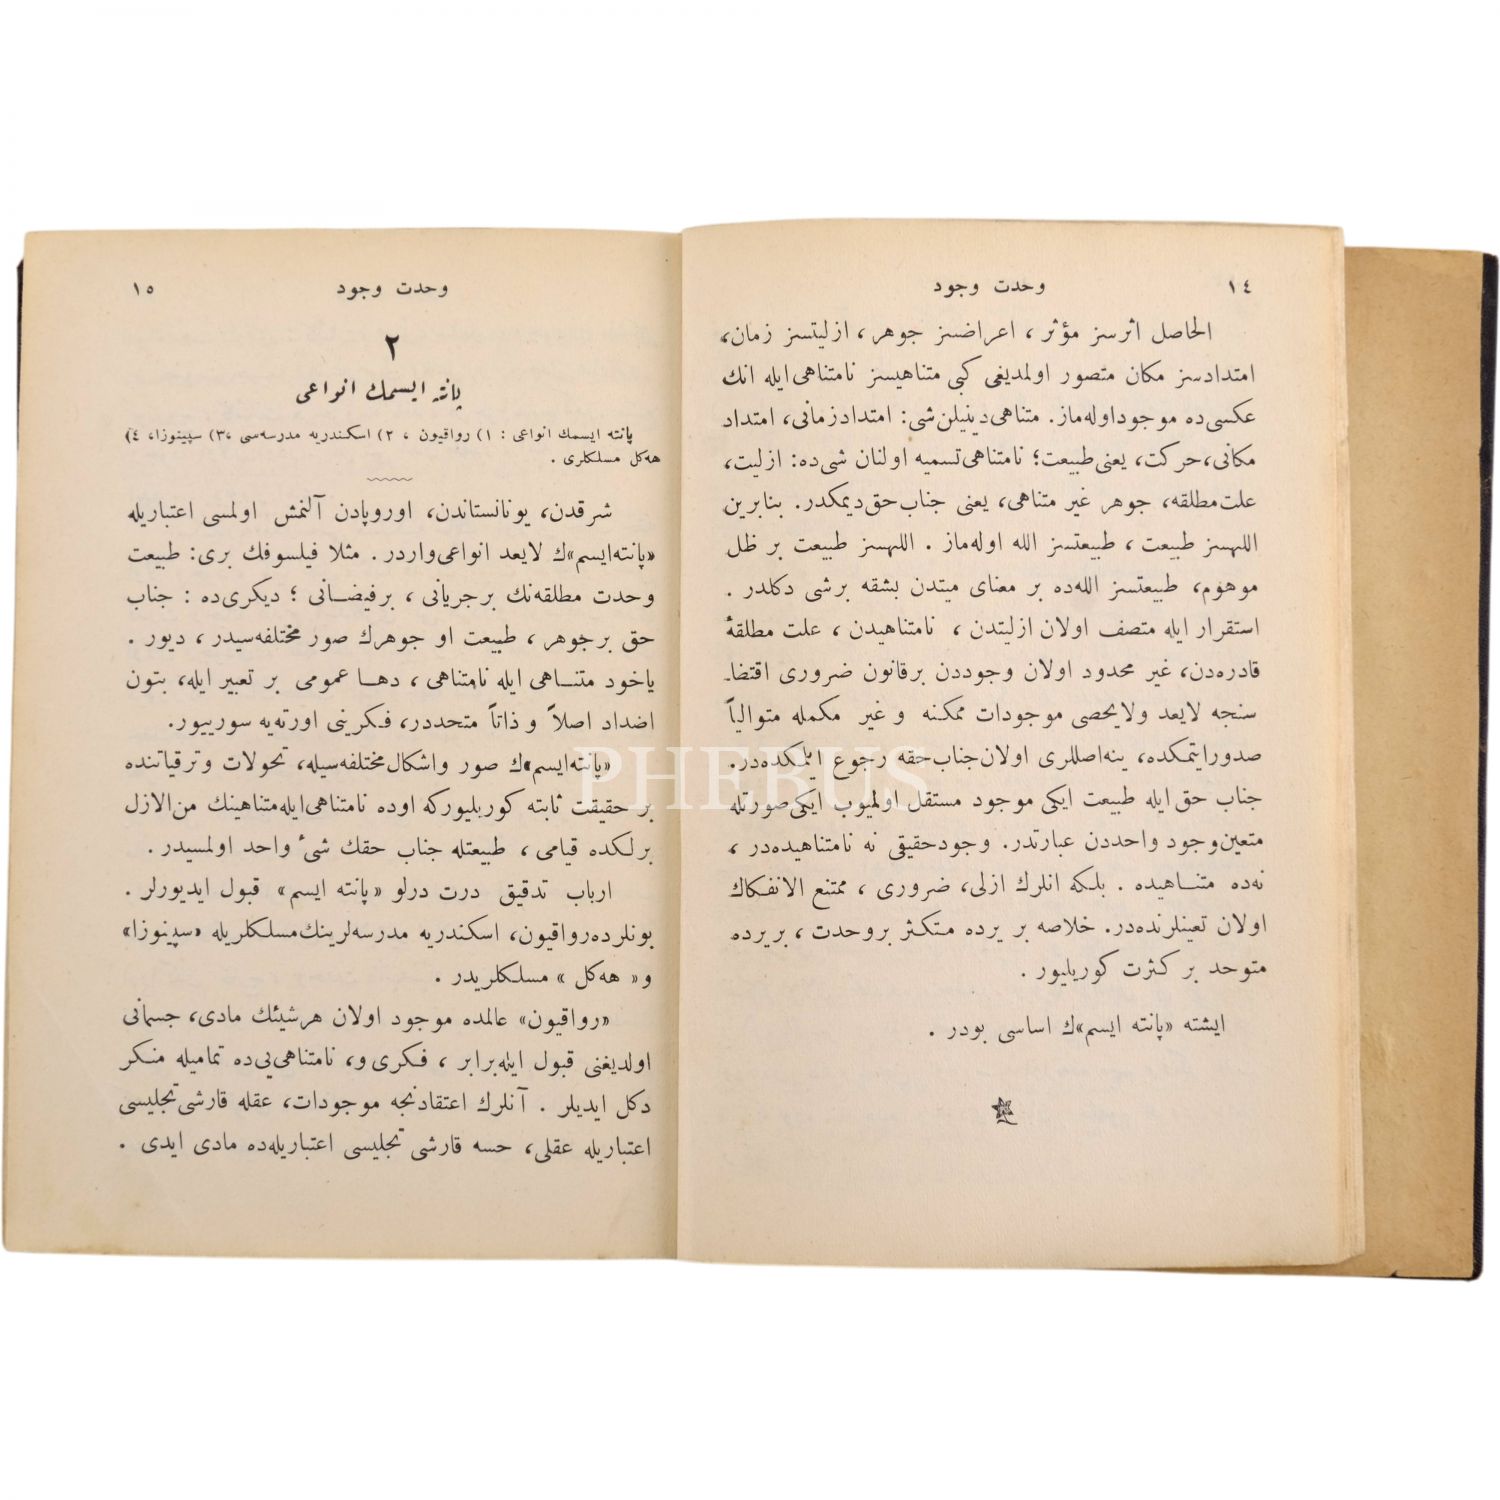 ١٤
وحدت وجود
الحاصل اثرسز مؤثر ، اعراضسز جوهر ، ازليتسز زمان،
امتدادسز مكان متصور اولمديغى كبى متناهيسز نامتناهى ايله انك
عكسى ده موجود اوله ماز. متناهى دينيلن شى: امتداد زمانى، امتداد
مكانى، حركت، يعنى طبيعت؛ نامتناهى تسميه اولنان شى ده: ازليت،
علت مطلقه، جوهر غير متناهى، يعنى جناب حق ديمكدر. بنابرين
اللهسز طبيعت ، طبيعتسز الله اوله ماز . اللهسز طبيعت بر ظل
موهوم، طبيعتسز الله ده بر معناى ميتدن بشقه برشى دكلدر .
استقرار ايله متصف اولان ازليتدن ، نامتناهيدن ، علت مطلقۀ
قادره دن، غير محدود اولان وجوددن برقانون ضرورى اقتضا-
سنجه لايعد ولايحصى موجودات ممكنه و غير مكمله متوالياً
صدور ايتمكده، ينه اصللرى اولان جناب حقه رجوع ايلمكده در.
جناب حق ايله طبيعت ايكى موجود مستقل اولميوب ايكى صورتله
متعين وجود واحددن عبارتدر. وجود حقيقى نه نامتناهيده در ،
نه ده متناهيده . بلكه انلرك ازلى، ضرورى ، ممتنع الانفكاك
اولان تعينلرنده در. خلاصه بر يرده متكثر بر وحدت ، بر يرده
متوحد بر كثرت كوريليور .
ايشته «پانته ايسم»ك اساسى بودر .
وحدت وجود
١٥
٢
پانته ايسمك انواعى
پانته ايسمك انواعى : ١) رواقيون ، ٢) اسكندريه مدرسه سى ،٣) سپينوزا، ٤)
هه كل مسلكلرى .
شرقدن، يونانستاندن، اوروپادن آلنمش اولمسى اعتباريله
«پانته ايسم»ك لايعد انواعى واردر . مثلا فيلسوفك برى: طبيعت
وحدت مطلقه نك بر جريانى ، بر فيضانى ؛ ديكرى ده : جناب
حق بر جوهر ، طبيعت او جوهرك صور مختلفه سيدر ، ديور .
ياخود متناهى ايله نامتناهى ، دها عمومى بر تعبير ايله، بتون
اضداد اصلاً و ذاتاً متحددر، فكرينى اورته يه سورييور.
«پانته ايسم»ك صور واشكال مختلفه سيله، تحولات وترقياتنده
بر حقيقت ثابته كوريليوركه اوده نامتناهى ايله متناهينك من الازل
برلكده قيامى ، طبيعتله جناب حقك شئ واحد اولمسيدر .
ارباب تدقيق درت درلو «پانته ايسم» قبول ايديورلر .
بونلرده رواقيون، اسكندريه مدرسه لرينك مسلكلريله «سپينوزا»
و« هه كل » مسلكلريدر .
«رواقيون» عالمده موجود اولان هر شيئك مادى، جسمانى
اولديغنى قبول ايله برابر ، فكرى و، نامتناهى يى ده تماميله منكر
دكل ايديلر . آنلرك اعتقادنجه موجودات، عقله قارشى تجليسى
اعتباريله عقلى، حسه قارشى تجليسى اعتباريله ده مادى ايدى .
PHEBUS